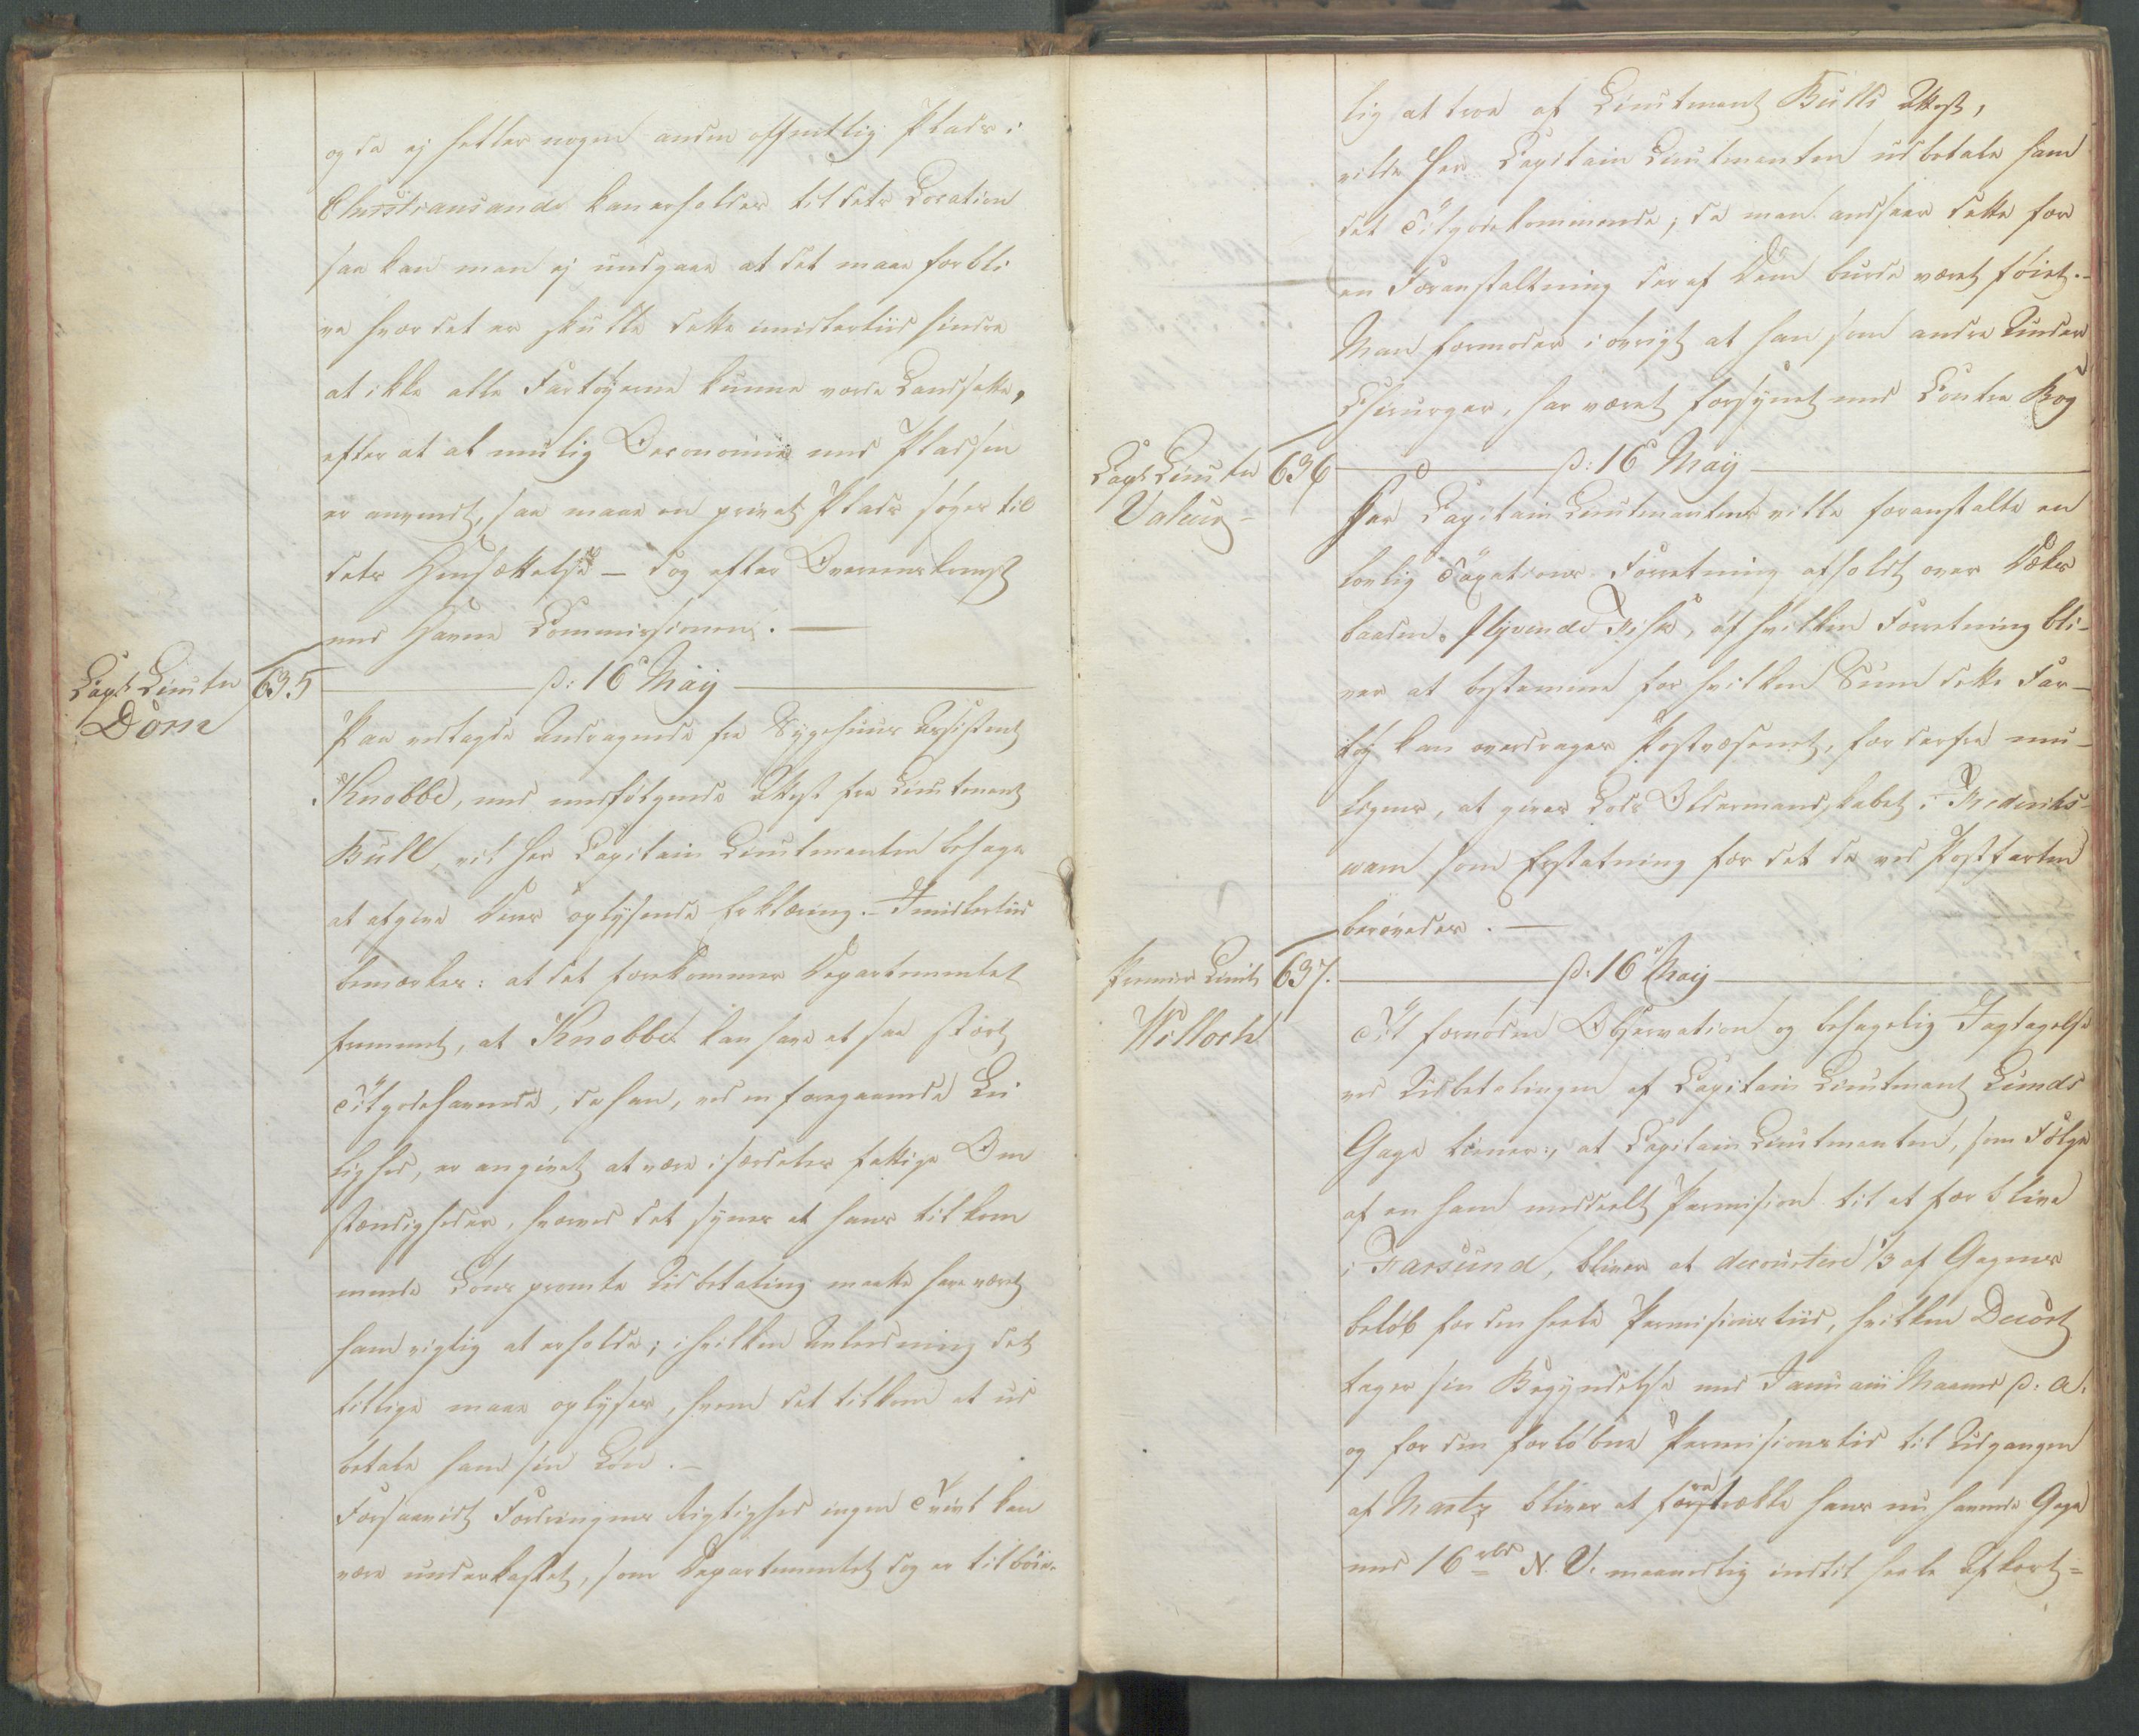 og da ej heller nogen anden offentlig Plads i
Christiansands kan erholdes til dets Location
saa kan man ej undgaae at det maae forbli
ve hvor det er skulle dette imidlertiid hindre
at ikke alle Fartøyerne kunne vorde Landsatte,
efter at al muelig Oeconomie med Pladsen
er anvendt, saa maae en privat Plads søges til
dets Hensættelse – dog efter Overeenskomst
med Havne Commissionen. —
Capt Lieutn 635 — D: 16 May —
Dorn
Paa vedlagde Andragende fra Sygehuus Assistent
Knobbe, med medfølgende Attest fra Lieutenant
Bull, vil Her Capitain Lieutenanten behage
at afgive Deres oplysende Erklæring. – Imidlertiid
bemærkes: at det forekommer Departementet
fremmet, at Knobbe kan have et saa stort
Tilgodehavende, da han, ved en foregaaende Lei
lighed, er angivet at være i særdeles fattige Om
stændigheder, hvorved det synes at hans tilkom
mende Løns promte Udbetaling maatte have været
ham vigtig at erholde; i hvilken Anledning det
tillige maae oplyses, hvem det tilkom at ud
betale ham sin Løn. –
Forsaavidt Fordringens Rigtighed ingen Tvivl kan
være underkastet, som Departementet dog er tilbøie-
lig at troe af Lieutenant Bulls Attest,
vilde Her Capitain Lieutenanten udbetale ham
det Tilgodekommende, da man ansaae dette for
en Foranstaltning der af Dem burde været føiet. –
Man formoder i øvrigt at han som andre Under
Chirurger, har været forsynet med Contra Bog
Capt Lieutn 636 — D: 16 May —
Valeur –
Her Capitain Lieutenanten ville foranstalte en
lovlig Taxations Forretning afholdt over Dæks
baaden flyvende Fisk, af hvilken Forretning bli-
ver at bestemme for hvilken Sum dette Far-
tøy kan overdrages Postvæsenet, for derfra mu-
ligens, at gives Lods Oldermandskabet i Frederiks-
wærn som Erstatning for det de ved Postfarten
berøvedes. —
Premier Lieut 637. — D: 16 May —
Willoch
Til fornøden Observation og behagelig Iagtagelse
ved Udbetalingen af Capitain Lieutenant Lunds
Gage tiener:, at Capitain Lieutenanten, som Følge
af en ham meddeelt Permission til at forblive
i Farsund, bliver at decourtere 1/3 af Gagens
beløb for den heele Permissions tiid, hvilken Decort
tager sin Begyndelse med Januarii Maaned d: A.
og for den forløbne Permissionstid til Udgangen
af Marty bliver at fratrække hans nu havende Gage
med 16 rbd N. V. maanedlig indtil heele Afkort=